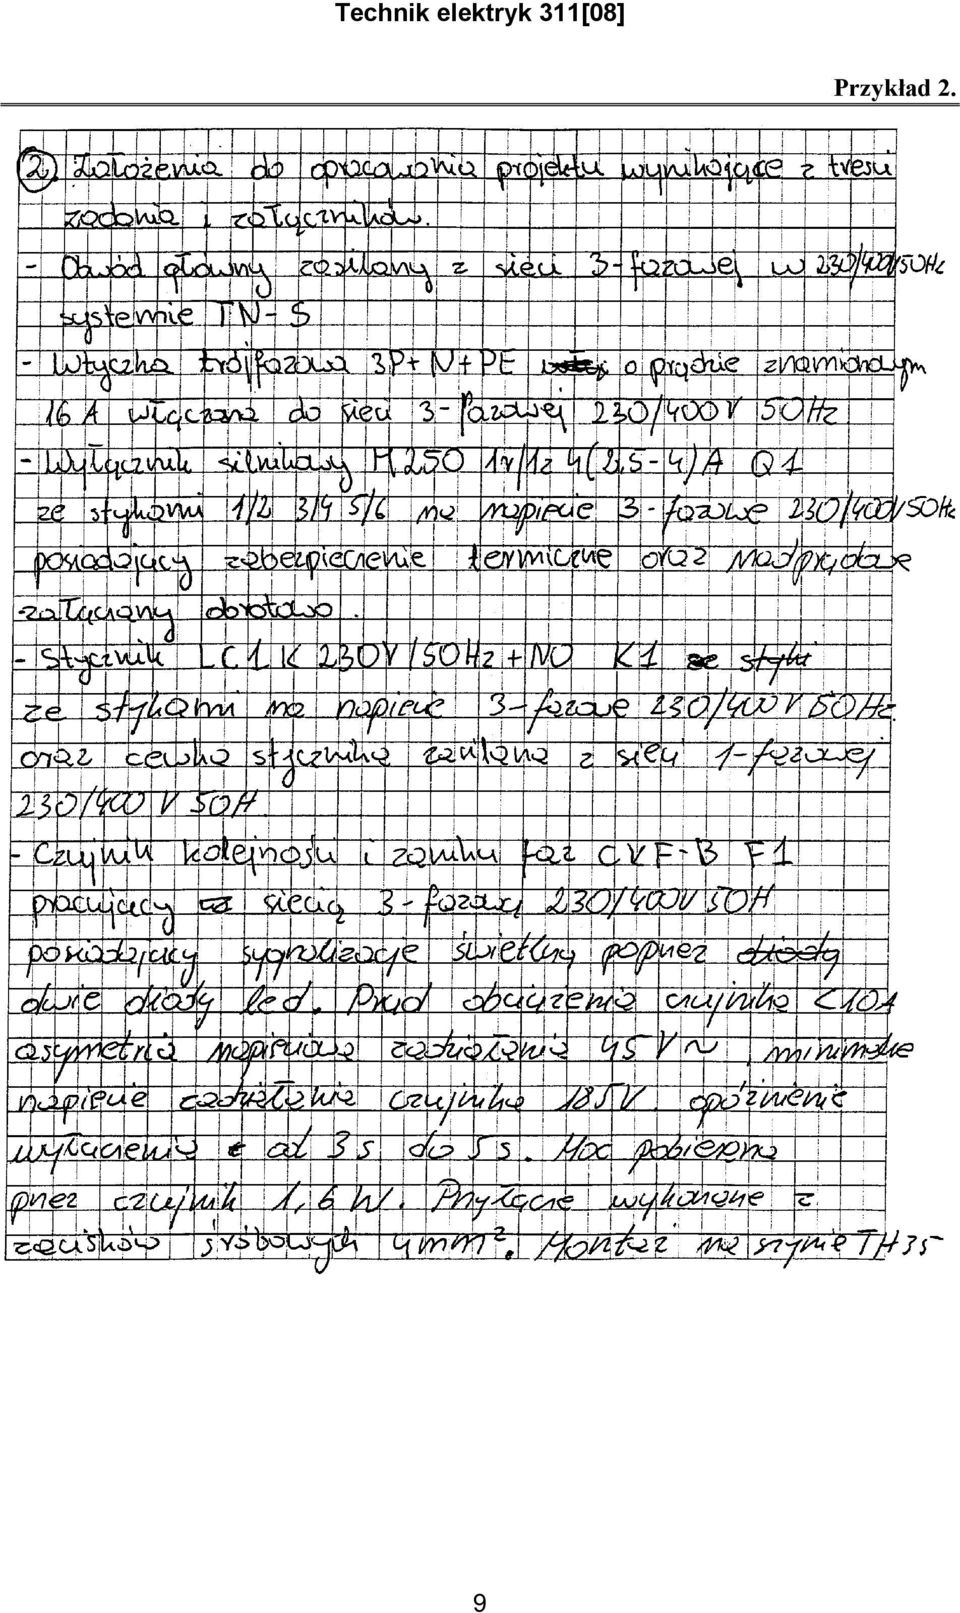 Technik elektryk 311[08]
Przykład 2.
2. Założenia do opracowania projektu wynikające z treści
zadania i załączników.
- Obwód główny zasilany z sieci 3-fazowej w 230/400V 50Hz
systemie TN-S
- Wtyczka trójfazowa 3P+N+PE o prądzie znamionowym
16 A włączana do sieci 3-fazowej 230/400V 50Hz
- Wyłącznik silnikowy M250 1r/1z 4(2,5-4)A Q1
ze stykami 1/2 3/4 5/6 na napięcie 3-fazowe 230/400V 50Hz
posiadający zabezpieczenie termiczne oraz nadprądowe
załączany obrotowo.
- Stycznik LC1K 230V/50Hz + NO K1 ze styki
ze stykami na napięcie 3-fazowe 230/400V 50Hz.
oraz cewka stycznika zasilana z sieci 1-fazowej
230/400 V 50H
- Czujnik kolejności i zaniku faz CKF-B F1
pracujący za siecią 3-fazową 230/400V 50H
posiadający sygnalizację świetlną poprzez diody
dwie diody led. Prąd obciążenia czujnika <10A
asymetria napięciowa zadziałania 45V~, minimalne
napięcie zadziałania czujnika 185V. opóźnienie
wyłączenia od 3s do 5s. Moc pobierana
przez czujnik 1,6 W. Przyłącze wykonane z
zacisków śrubowych 4mm². Montaż na szynie TH35
9